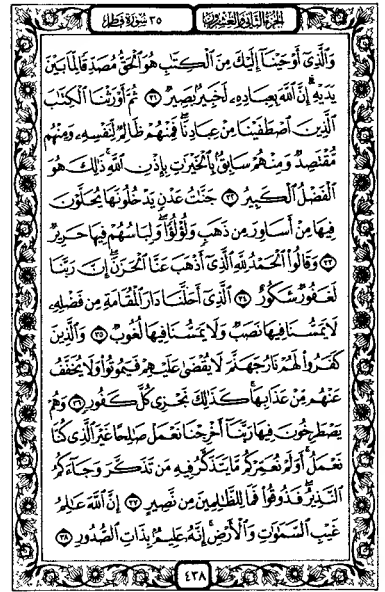 الجزء الثاني والعشرون ٣٥ سورة فاطر
وَالَّذِىٓ أَوْحَيْنَآ إِلَيْكَ مِنَ الْكِتَٰبِ هُوَ الْحَقُّ مُصَدِّقًا لِّمَا بَيْنَ
يَدَيْهِ ۗ إِنَّ اللَّهَ بِعِبَادِهِۦ لَخَبِيرٌۢ بَصِيرٌ ٣١ ثُمَّ أَوْرَثْنَا الْكِتَٰبَ
الَّذِينَ اصْطَفَيْنَا مِنْ عِبَادِنَا ۖ فَمِنْهُمْ ظَالِمٌ لِّنَفْسِهِۦ وَمِنْهُم
مُّقْتَصِدٌ وَمِنْهُمْ سَابِقٌۢ بِالْخَيْرَٰتِ بِإِذْنِ اللَّهِ ۚ ذَٰلِكَ هُوَ
الْفَضْلُ الْكَبِيرُ ٣٢ جَنَّٰتُ عَدْنٍ يَدْخُلُونَهَا يُحَلَّوْنَ
فِيهَا مِنْ أَسَاوِرَ مِن ذَهَبٍ وَلُؤْلُؤًا ۖ وَلِبَاسُهُمْ فِيهَا حَرِيرٌ
٣٣ وَقَالُوا الْحَمْدُ لِلَّهِ الَّذِىٓ أَذْهَبَ عَنَّا الْحَزَنَ ۖ إِنَّ رَبَّنَا
لَغَفُورٌ شَكُورٌ ٣٤ الَّذِىٓ أَحَلَّنَا دَارَ الْمُقَامَةِ مِن فَضْلِهِۦ
لَا يَمَسُّنَا فِيهَا نَصَبٌ وَلَا يَمَسُّنَا فِيهَا لُغُوبٌ ٣٥ وَالَّذِينَ
كَفَرُوا لَهُمْ نَارُ جَهَنَّمَ لَا يُقْضَىٰ عَلَيْهِمْ فَيَمُوتُوا وَلَا يُخَفَّفُ
عَنْهُم مِّنْ عَذَابِهَا ۚ كَذَٰلِكَ نَجْزِى كُلَّ كَفُورٍ ٣٦ وَهُمْ
يَصْطَرِخُونَ فِيهَا رَبَّنَآ أَخْرِجْنَا نَعْمَلْ صَٰلِحًا غَيْرَ الَّذِى كُنَّا
نَعْمَلُ ۚ أَوَلَمْ نُعَمِّرْكُم مَّا يَتَذَكَّرُ فِيهِ مَن تَذَكَّرَ وَجَآءَكُمُ
النَّذِيرُ ۖ فَذُوقُوا فَمَا لِلظَّٰلِمِينَ مِن نَّصِيرٍ ٣٧ إِنَّ اللَّهَ عَٰلِمُ
غَيْبِ السَّمَٰوَٰتِ وَالْأَرْضِ ۚ إِنَّهُۥ عَلِيمٌۢ بِذَاتِ الصُّدُورِ ٣٨
٤٣٨